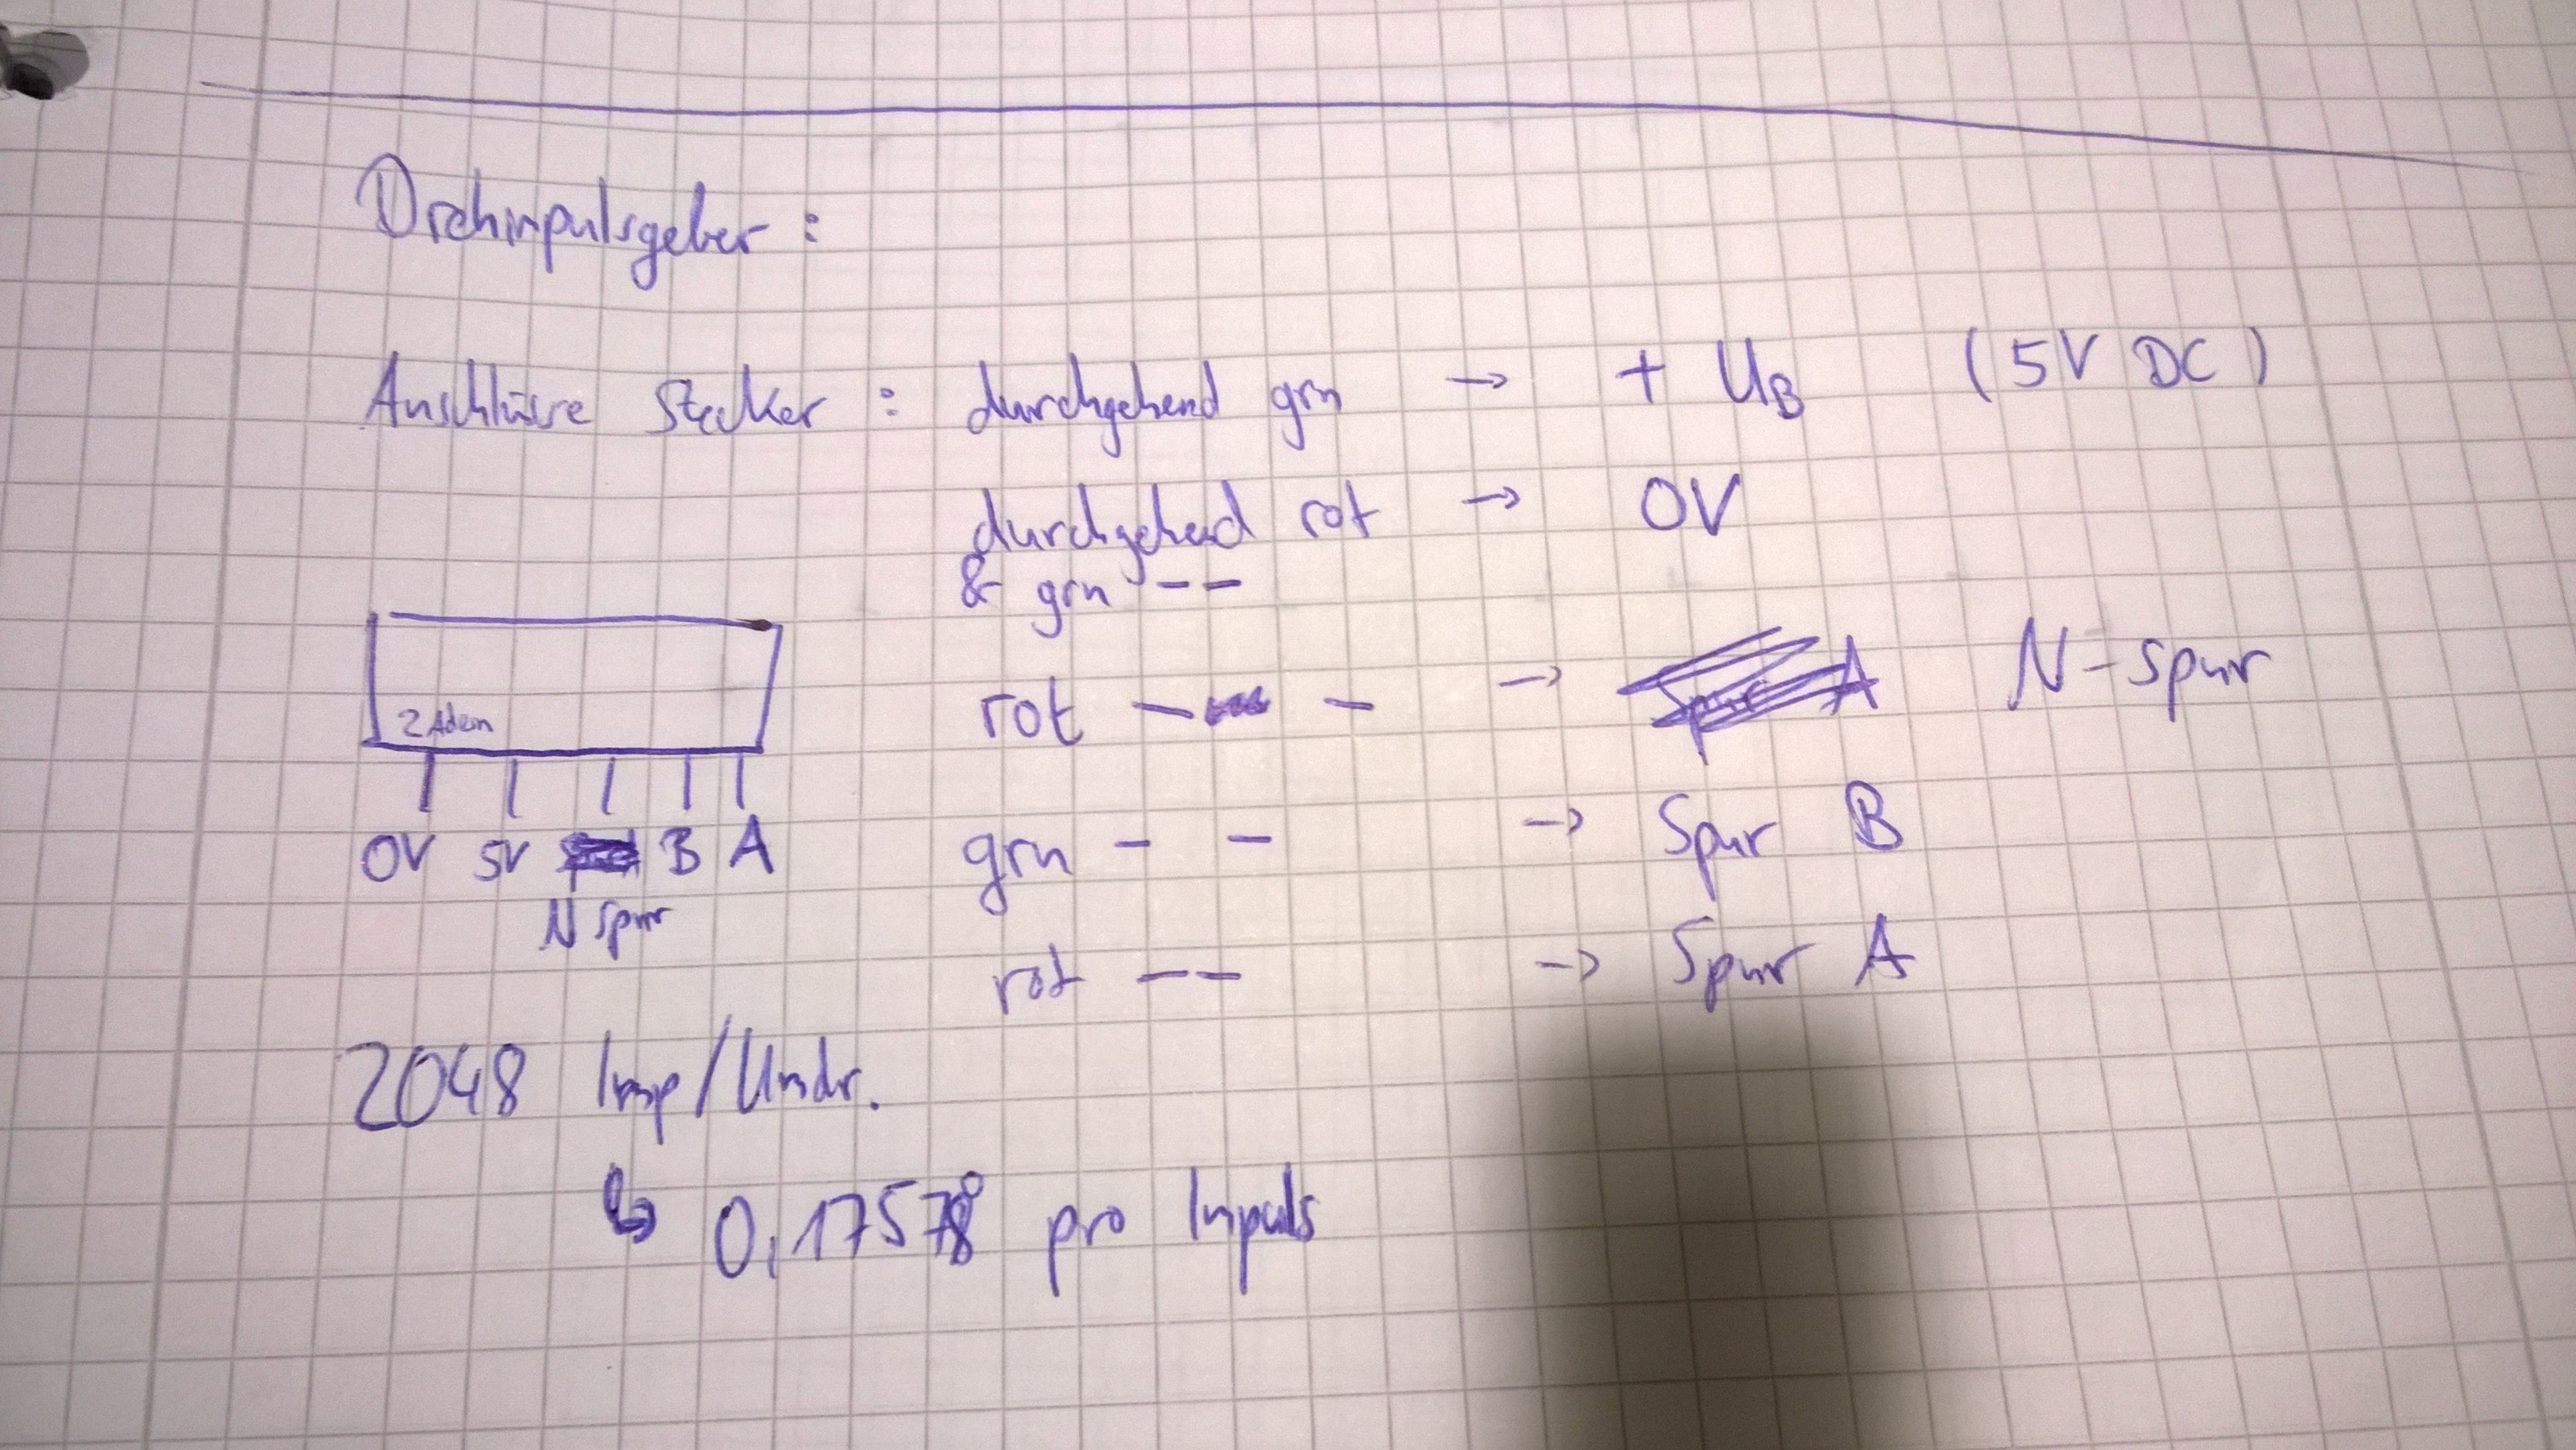 Drehimpulsgeber :
Anschlüsse Stecker : durchgehend grn → + UB (5V DC)
durchgehend rot → 0V
& grn --
rot — - → N-Spur
grn - - → Spur B
rot -- → Spur A
2 Adern
0V 5V B A
N Spur
2048 Imp/Umdr.
↳ 0,17578° pro Impuls